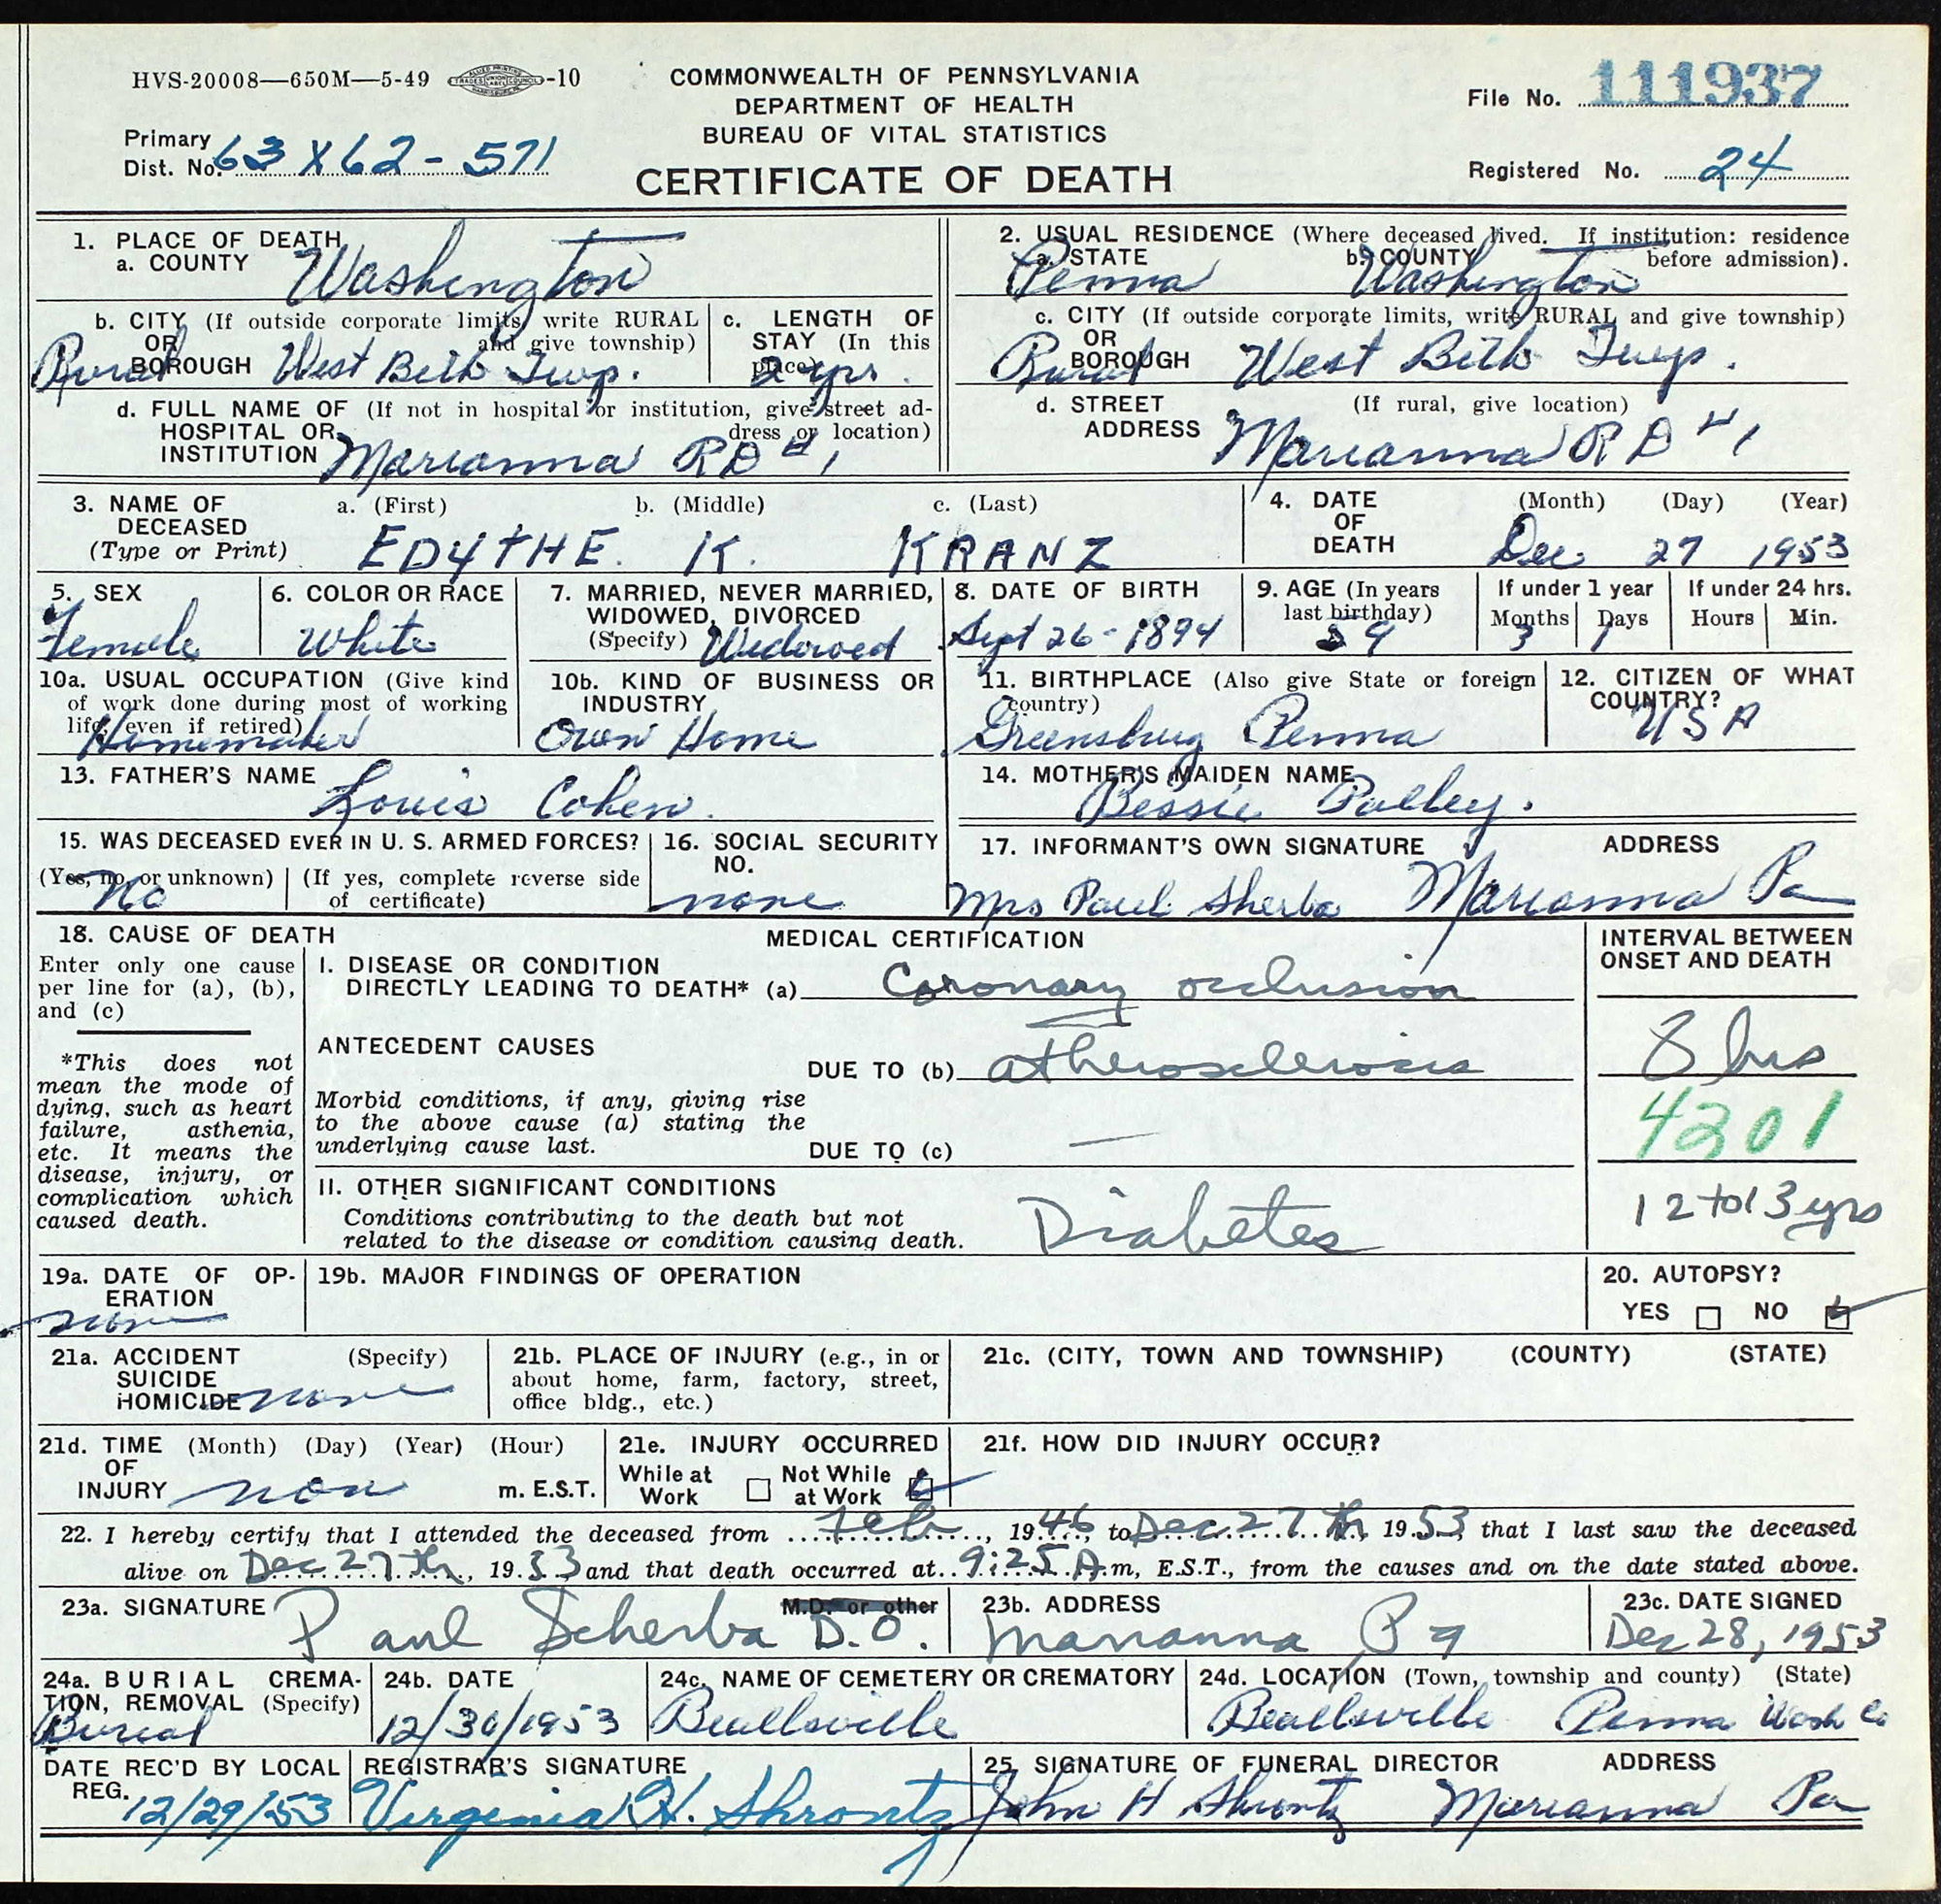 HVS-20008—650M—5-49 -10
COMMONWEALTH OF PENNSYLVANIA
DEPARTMENT OF HEALTH
BUREAU OF VITAL STATISTICS
CERTIFICATE OF DEATH
File No. 111937
Primary Dist. No. 63 X 62 - 571
Registered No. 24
1. PLACE OF DEATH
a. COUNTY Washington
2. USUAL RESIDENCE (Where deceased lived. If institution: residence before admission).
a. STATE Penna b. COUNTY Washington
b. CITY (If outside corporate limits, write RURAL and give township)
OR BOROUGH Rural West Beth Twp.
c. LENGTH OF STAY (In this place) 2 yrs.
c. CITY (If outside corporate limits, write RURAL and give township)
OR BOROUGH Rural West Beth Twp.
d. FULL NAME OF (If not in hospital or institution, give street address or location)
HOSPITAL OR INSTITUTION Marianna RD #1
d. STREET ADDRESS (If rural, give location)
Marianna RD #1
3. NAME OF DECEASED (Type or Print)
a. (First) b. (Middle) c. (Last)
EDYTHE. K. KRANZ
4. DATE OF DEATH (Month) (Day) (Year)
Dec 27 1953
5. SEX Female
6. COLOR OR RACE White
7. MARRIED, NEVER MARRIED, WIDOWED, DIVORCED (Specify) Widowed
8. DATE OF BIRTH Sept 26-1894
9. AGE (In years last birthday) 59
If under 1 year Months 3 Days 1
If under 24 hrs. Hours Min.
10a. USUAL OCCUPATION (Give kind of work done during most of working life, even if retired) Homemaker
10b. KIND OF BUSINESS OR INDUSTRY Own Home
11. BIRTHPLACE (Also give State or foreign country) Greensburg Penna
12. CITIZEN OF WHAT COUNTRY? USA
13. FATHER'S NAME Louis Cohen.
14. MOTHER'S MAIDEN NAME Bessie
15. WAS DECEASED EVER IN U. S. ARMED FORCES?
(Yes, no, or unknown) No (If yes, complete reverse side of certificate)
16. SOCIAL SECURITY NO. none
17. INFORMANT'S OWN SIGNATURE ADDRESS
Mrs Paul Sherba Marianna Pa
18. CAUSE OF DEATH
Enter only one cause per line for (a), (b), and (c)
*This does not mean the mode of dying, such as heart failure, asthenia, etc. It means the disease, injury, or complication which caused death.
MEDICAL CERTIFICATION
INTERVAL BETWEEN ONSET AND DEATH
I. DISEASE OR CONDITION
DIRECTLY LEADING TO DEATH* (a) Coronary occlusion
8 hrs
ANTECEDENT CAUSES
DUE TO (b) atherosclerosis
4201
Morbid conditions, if any, giving rise to the above cause (a) stating the underlying cause last.
DUE TO (c) —
II. OTHER SIGNIFICANT CONDITIONS
Conditions contributing to the death but not related to the disease or condition causing death.
Diabetes
12 to 13 yrs
19a. DATE OF OPERATION none
19b. MAJOR FINDINGS OF OPERATION
20. AUTOPSY?
YES NO
21a. ACCIDENT SUICIDE HOMICIDE (Specify) none
21b. PLACE OF INJURY (e.g., in or about home, farm, factory, street, office bldg., etc.)
21c. (CITY, TOWN AND TOWNSHIP) (COUNTY) (STATE)
21d. TIME OF INJURY (Month) (Day) (Year) (Hour) m. E.S.T.
21e. INJURY OCCURRED
While at Work Not While at Work
21f. HOW DID INJURY OCCUR?
22. I hereby certify that I attended the deceased from Feb, 1946 to Dec 27th, 1953, that I last saw the deceased
alive on Dec 27th, 1953 and that death occurred at 9:25 A.m, E.S.T., from the causes and on the date stated above.
23a. SIGNATURE M.D. or other
Paul Scherba D.O.
23b. ADDRESS Marianna Pa
23c. DATE SIGNED Dec 28, 1953
24a. BURIAL CREMATION, REMOVAL (Specify) Burial
24b. DATE 12/30/1953
24c. NAME OF CEMETERY OR CREMATORY Beallsville
24d. LOCATION (Town, township and county) (State)
Beallsville Penna Wash Co
DATE REC'D BY LOCAL REG. 12/29/53
REGISTRAR'S SIGNATURE Virginia H. Shrontz
25. SIGNATURE OF FUNERAL DIRECTOR ADDRESS
John H Shrontz Marianna Pa